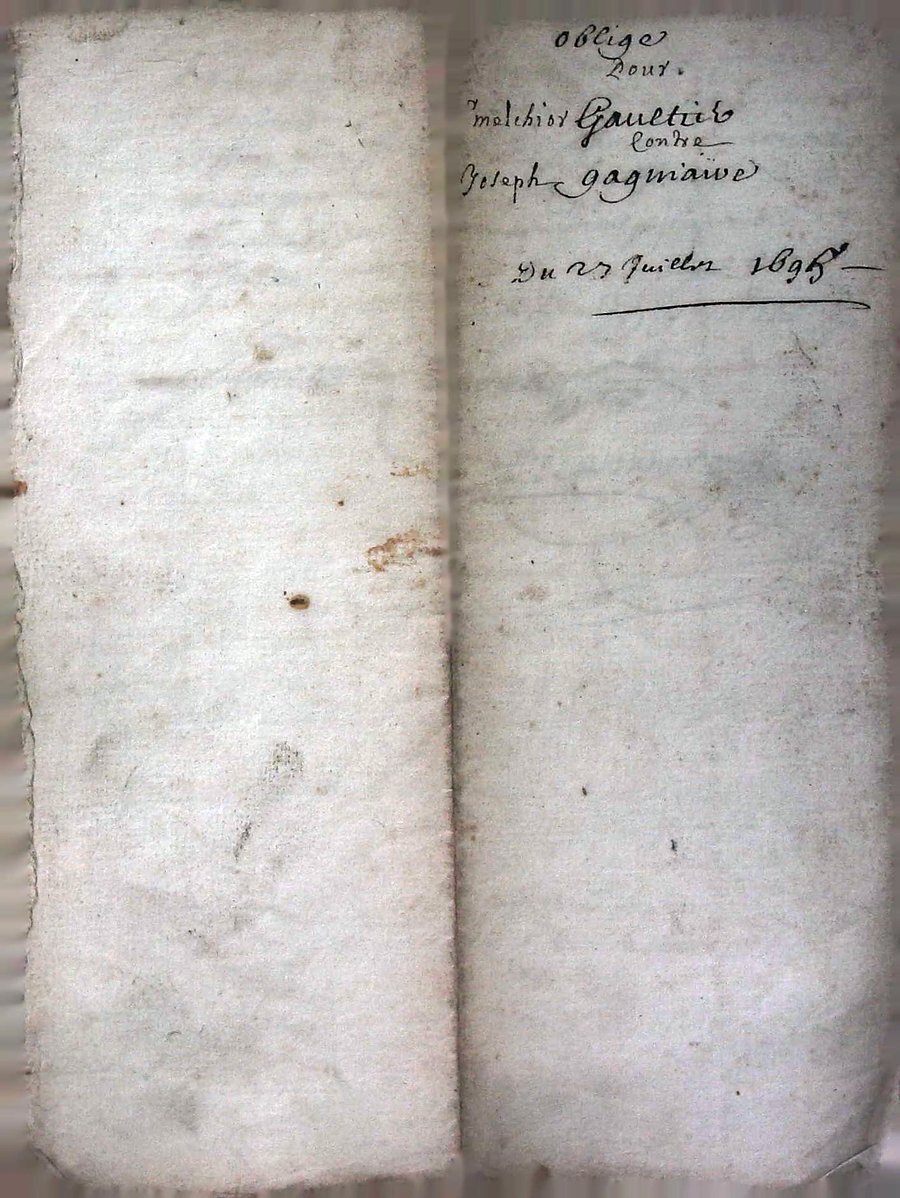 oblige
pour.
melchior Gaultier
Contre
Joseph
Du 27 Juillet 1695